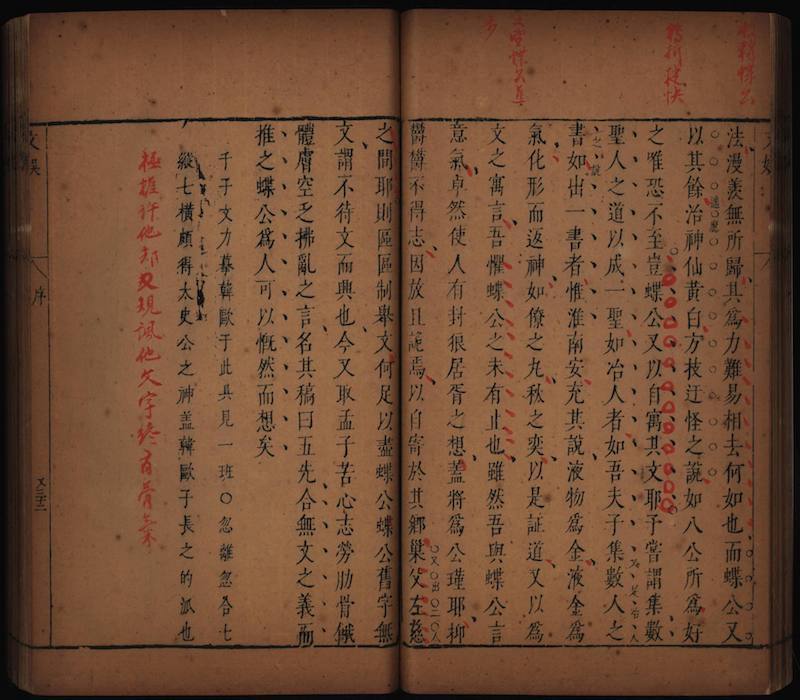 法漫羨無所歸其為力難易相去何如也而蝶公又
以其餘冶神仙黃白方技迂怪之說如八公所為好
之唯恐不至豈蝶公又以自寓其文耶子嘗謂集數
聖人之道以成一聖如冶人者如吾夫子集數人之
書如出一書者惟淮南安充其說液物為金液金為
氣化形而返神如僚之九秋之奕以是証道又以為
文之寓言吾懼蝶公之未有止也雖然吾與蝶公言
意氣卓然使人有封狼居胥之想蓋將為公瑾耶抑
欝欝不得志因放且詭焉以自寄於其鄉巢父左慈
之間耶則區區制舉文何足以盡蝶公蝶公舊字無
文謂不待文而興也今又取孟子苦心志勞肋骨餓
體膚空乏拂亂之言名其稿曰五先合無文之義而
推之蝶公為人可以慨然而想矣
千子文力摹韓歐于此具見一班○忽離忽合七
縱七橫頗得太史公之神盖韓歐子長之的派也
序